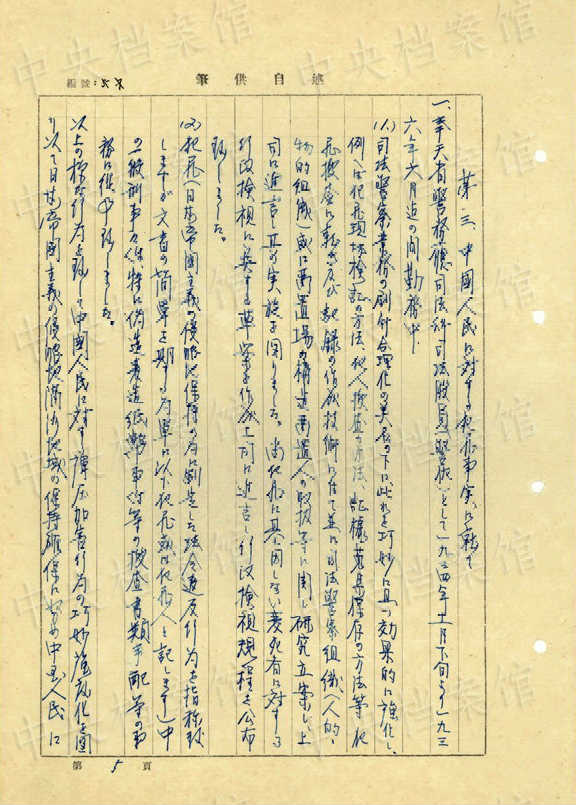 編號：
筆供自述
第三、中國人民に対する犯罪事実に就て
一、奉天省警務廳司法科司法股員（警佐）として一九三四年十一月下旬より一九三
六年六月迄の間勤務中
(1)司法警察業務の刷新合理化の美名の下に此れを巧妙に且つ効果的に強化し、
例へば犯罪現場検証の方法、犯人捜査の方法、証拠蒐集保存の方法等犯
罪捜査に就き及び記録の作成技術に付て並に司法警察組織（人的、
物的組織）或は留置場の構造留置人の取扱等に関し研究立案し上
司に進言し且つ実施を図りました。尚犯罪に基因しない変死者に対する
行政検視に関する草案を作成上司に進言し行政検視規程を公布
致しました。
(2)犯罪（日本帝国主義の侵略地保持の為に制定した法令違反行為を指称致
しますが文書の簡単を期する為単に以下犯罪或は犯人と記します）中
の一般刑事々件、特に偽造変造紙幣事件等の捜査書類手配等の事
務に従事致しました。
以上の様な行為を致して中国人民に対する弾圧加害行為の巧妙強化を図
り以て日本帝国主義の侵略占領地域の保持確保に努め中国人民に
第 5 頁
中央档案馆